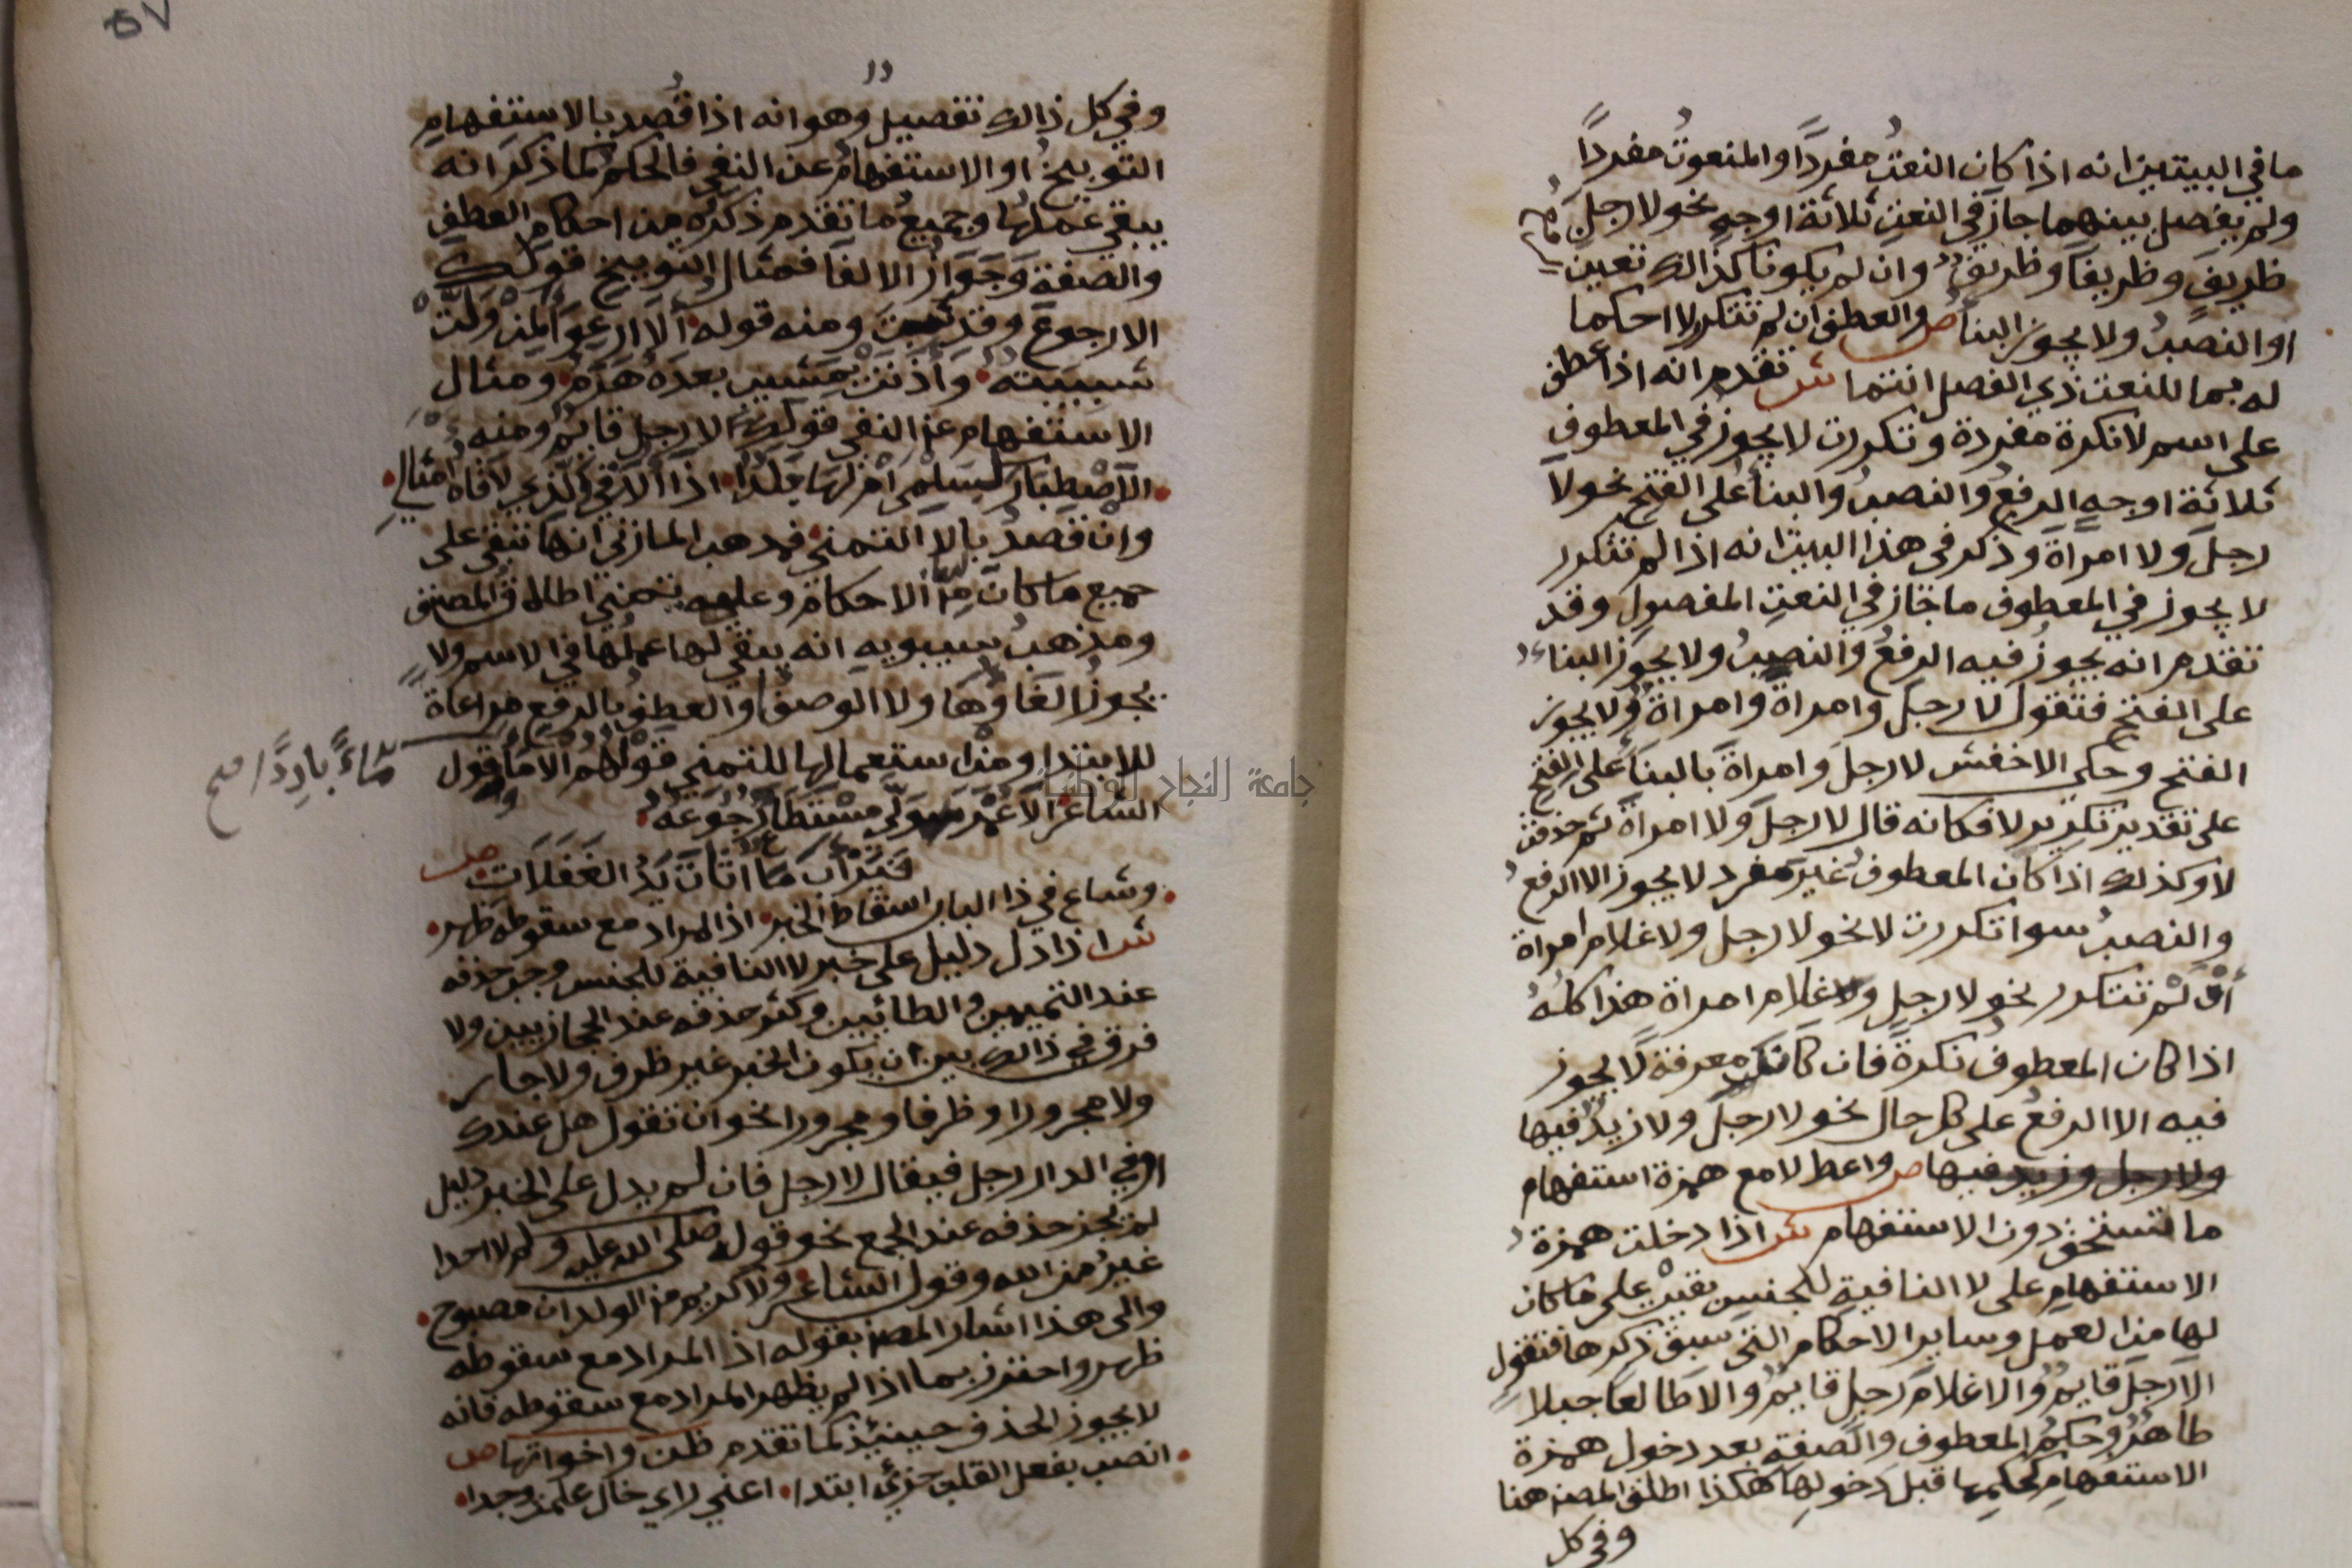 ما في البيتين انه اذا كان النعتُ مفردًا والمنعوتُ مفردًا
ولم يفصل بينهما جاز في النعتِ ثلاثة اوجهٍ نحو لا رجلَ
ظريفَ وظريفًا وظريفٌ وان لم يكونا كذالك تعين
او النصبُ ولا يجوز البناءُ ص والعطف ان لم تتكرر لا احكما
له بما للنعت ذي الفصل انتما ش تقدم انه اذا عطف
على اسم لا نكرة مفردة وتكررت لا يجوز في المعطوف
ثلاثة اوجهٍ الرفعُ والنصبُ والبناءُ على الفتح نحو لا
رجلَ ولا امراةَ وذكر في هذا البيت انه اذا لم تتكرر
لا يجوز في المعطوف ما جاز في النعتِ المفصولِ وقد
تقدم انه يجوزُ فيه الرفعُ والنصبُ ولا يجوز البناءُ
على الفتح فتقول لا رجلَ وامراةً وامراةٌ ولا يجوز
الفتح وحكى الاخفش لا رجلَ وامراةَ بالبناءَ على الفتح
على تقدير تكرير لا فكانه قال لا رجلَ ولا امراةَ ثم حذفت
لا وكذلك اذا كان المعطوفُ غيرَ مفردٍ لا يجوز الا الرفعُ
والنصبُ سوا تكررت لا نحو لا رجل ولا غلام امراة
أوْ لَمْ تتكرر نحو لا رجل وغلام امراة هذا كلهُ
اذا كان المعطوفُ نكرةً فان كان معرفة لا يجوز
فيه الا الرفعُ على كل حال نحو لا رجلَ ولا زيدٌ فيها
ولا رجل وزيد فيها ص واعط لا مع همزة استفهام
ما تستحق دون الاستفهام ش اذا دخلت همزةُ
الاستفهامِ على لا النافيةِ للجنسِ بقيتْ على ما كان
لها من العملِ وسايرِ الاحكامِ التي سبق ذكرها فتقول
الا رجلَ قايمٌ والا غلامَ رجلٍ قايمٌ والا طالعًا جبلا
طاهرٌ وحكمُ المعطوف والصفةِ بعد دخول همزة
الاستفهامِ كحكمِها قبل دخولِها هكذا اطلق المصنف هنا
وفي كل
٥٧
وفي كل ذالك تفصيلٌ وهو انه اذا قُصد بالاستفهامِ
التوبيخُ او الاستفهامُ عن النفي فالحكمُ كما ذكرَ انه
يبقى عملُها وجميعُ ما تقدم ذكرُه من احكامِ العطفِ
والصفةِ وَجَوَازُ الالغا فمثال التوبيخِ قولكَ
الا رجوعَ وقد شبتَ ومنه قوله ألا ارعواَ لمن ولّتْ
شبيبته وَأذَنتْ بمَشيبٍ بعدَهُ هَرَمُ ومثال
الاستفهام عن النفي قولكَ الا رجل قائمٌ ومنه
الا اصْطِبَارَ لسَلْمى أمْ لَها جَلَدٌ اذا ألاقي الذي لاقاهُ أمثالي
وان قصدَ بالا التمني فمذهب المازني انها تبقى على
جميع ما كان لها من الاحكام وعليه يتمشى اطلاقُ المصنف
ومذهبُ سيبويهِ انه يبقى لها عملُها في الاسم ولا
يجوزُ الغاؤُهَا ولا الوصفُ او العطفُ بالرفعِ مراعاةً
للابتدا ومن استعمالِها للتمني قولُهُم الا مَا وقول
مَاءَ بارِدًا صح
الشاعر الا عُمْرَ وَلّى مُسْتَطَاعٌ رُجُوعُهُ
فَيَرْأبَ مَا اثأتْ يَدُ الغَفَلَاتِ ص
وشاع في ذا الباب اسقاط الخبر اذا المراد مع سقوطه ظهر
ش اذا دل دليل على خبر لا النافية للجنس وجب حذفه
عند التميميين والطائيين وكثر حذفه عند الحجازيين ولا
فرق في ذالك بين ان يكون الخبر غير ظرف ولا جار
ولا مجرورا وظرفا ومجرورا نحو ان تقول هل عندك
او في الدار رجل فيقال لا رجل فان لم يدل على الخبر دليل
لم يجز حذفه عند الجميع نحو قوله صلى الله عليه وسلم لا احدا
غيرُ من الله وقول الشاعر ولا كريم من الولدان مصبوح
والى هذا اشار المصنف بقوله اذا المراد مع سقوطه
ظهر واحترز بما اذا لم يظهر المراد مع سقوطه فانه
لا يجوز الحذف حينئذ كما تقدم ظن واخواتها ص
انصب بفعل القلب جزئي ابتدا اعني راى خال علمت وجدا
جامعة النجاح الوطنية